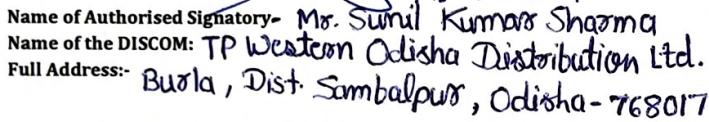 Name of Authorised Signatory- Mr. Sunil Kumar Sharma
Name of the DISCOM: TP Western Odisha Distribution Ltd.
Full Address:- Burla, Dist. Sambalpur, Odisha-768017